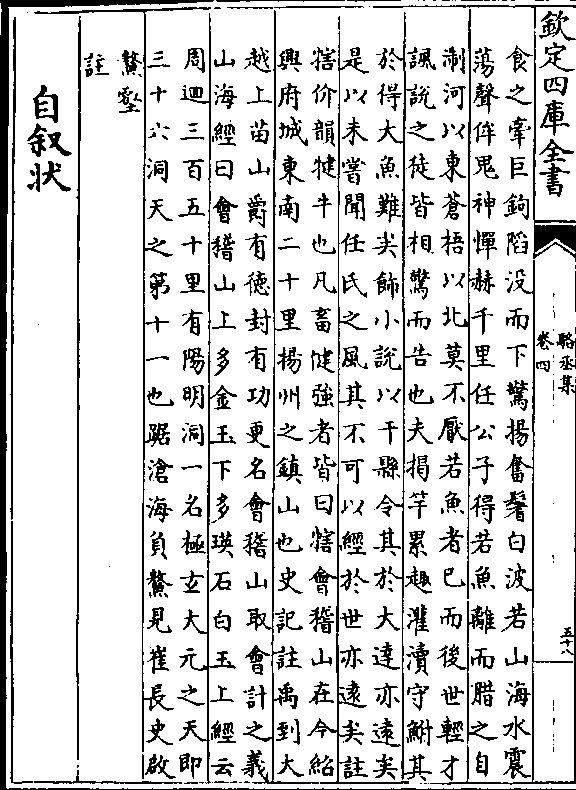 欽定四庫全書
駱丞集
卷四
五十八
食之牽巨鉤䧟没而下驚揚奮鬐白波若山海水震
蕩聲侔鬼神憚赫千里任公子得若魚離而腊之自
淛河以東蒼梧以北莫不厭若魚者已而後世輕才
諷說之徒皆相驚而告也夫揭竿累趣灌瀆守鮒其
於得大魚難矣飾小說以干縣令其於大逹亦遠矣
是以未嘗聞任氏之風其不可以經於世亦遠矣註
犗价韻犍牛也凡畜健強者皆曰犗會稽山在今紹
興府城東南二十里揚州之鎮山也史記註禹到大
越上苗山爵有徳封有功更名會稽山取會計之義
山海經曰會稽山上多金玉下多瑛石白玉上經云
周迴三百五十里有陽明洞一名極玄大元之天即
三十六洞天之第十一也踞滄海負鰲見崔長史啟
鰲壑
註
自叙狀